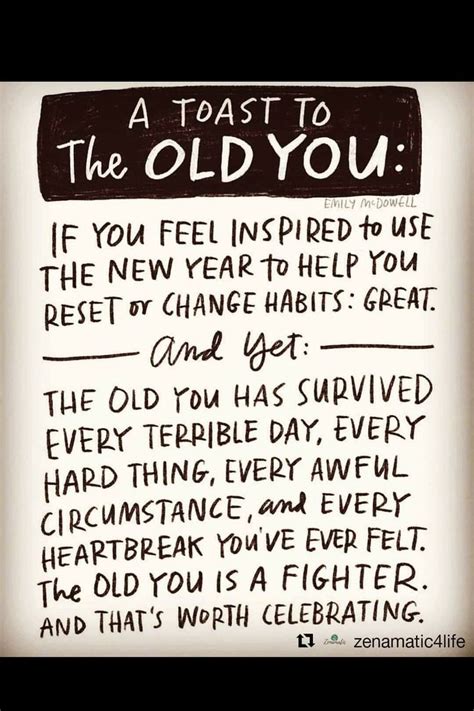 A TOAST TO
The OLD YOU:
EMILY McDOWELL
IF YOU FEEL INSPIRED to USE
THE NEW YEAR to HELP YOU
RESET or CHANGE HABITS: GREAT.
and yet:
THE OLD YOU HAS SURVIVED
EVERY TERRIBLE DAY, EVERY
HARD THING, EVERY AWFUL
CIRCUMSTANCE, and EVERY
HEARTBREAK YOU'VE EVER FELT.
The OLD YOU IS A FIGHTER.
AND THAT'S WORTH CELEBRATING.
zenamatic4life